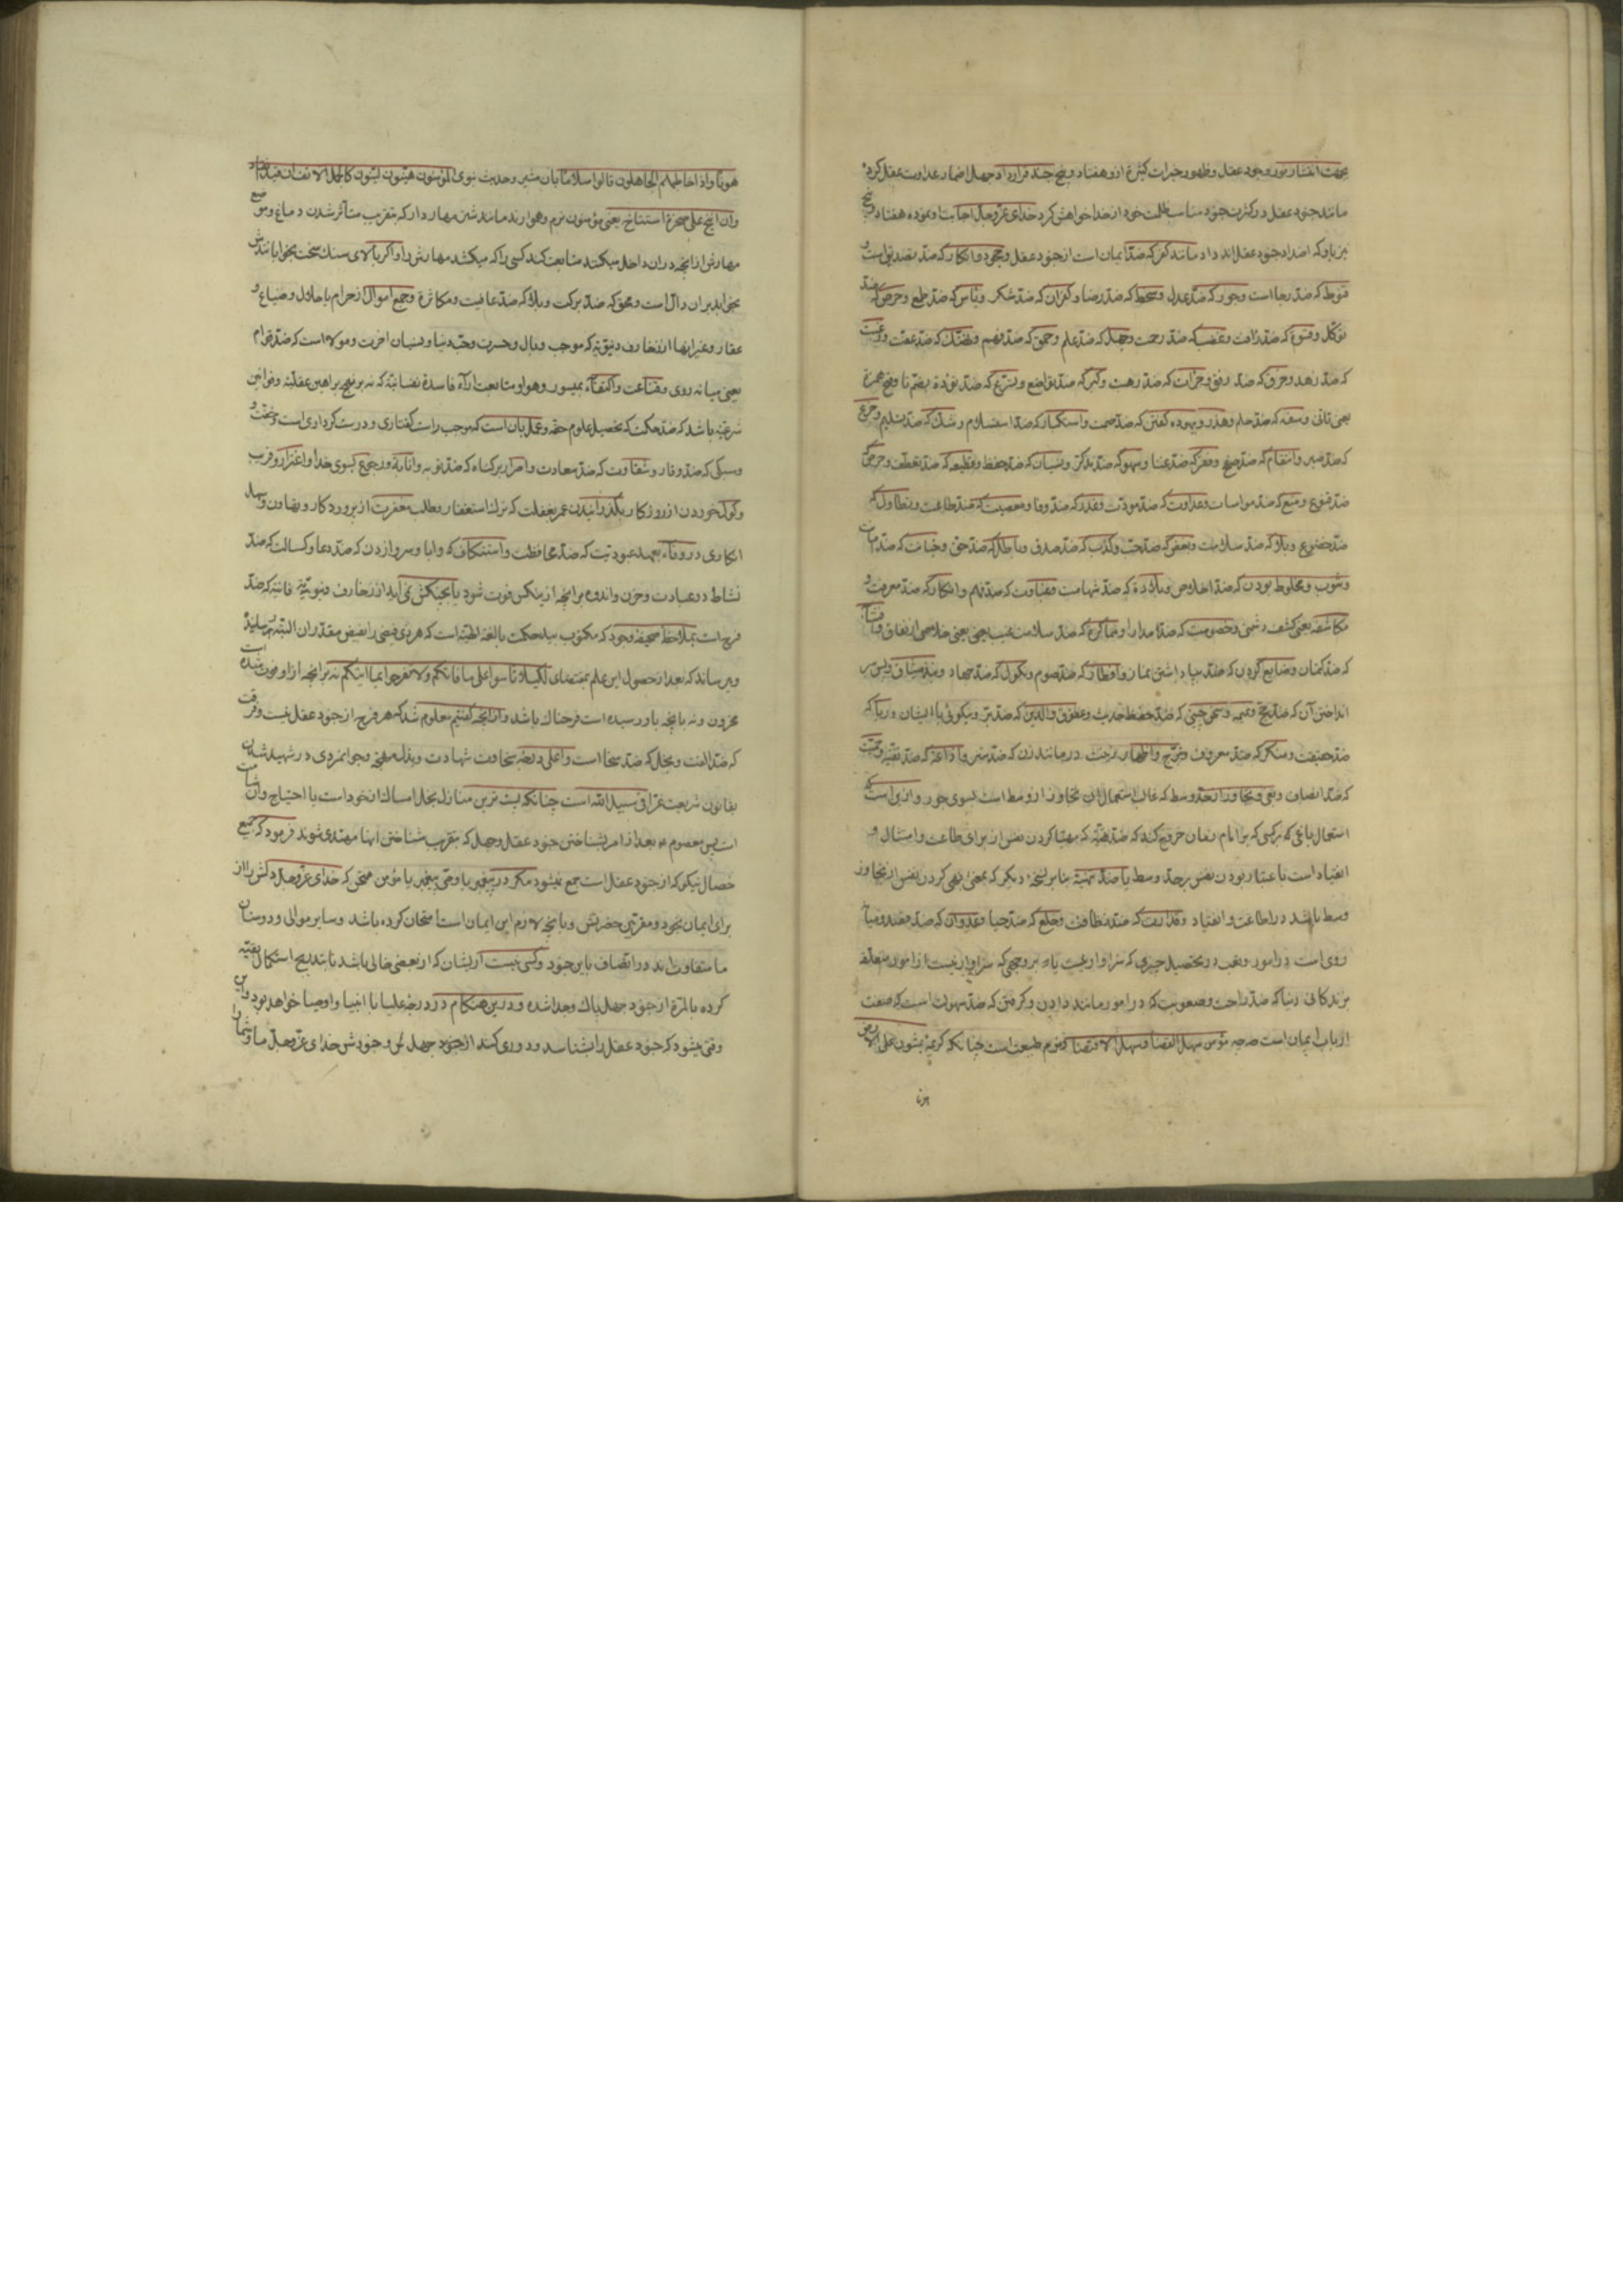 بجهت انتشار نور وجود عقل و ظهور خیرات کثیرة ازو هفتاد و پنج جند قرار داد جهل اضمار عداوت عقل کرد
مانند جنود عقل در کثرت جنود مناسب ظلمت خود از خدا خواهش کرد خدای عزوجل اجابت او نموده هفتاد و پنج
نیز باو که اضداد جنود عقل اند داد مانند کفر که ضد ایمان است از جنود عقل و جحود و انکار که ضد تصدیق است و
قنوط که ضد رجا است و جور که ضد عدل و سخط که ضد رضا و کفران که ضد شکر و یأس که ضد طمع و حرص که ضد
توکل و قسوة که ضد رأفت و غضب که ضد رحمت و جهل که ضد علم و حمق که ضد فهم و تهتک که ضد عفت و رغبت
که ضد زهد و خرق که ضد رفق و جرأت که ضد رهبت و کبر که ضد تواضع و تسرع که ضد تؤدة بضم تا و فتح همزة
یعنی تأنی و سفه که ضد حلم و هذر و بیهوده گفتن که ضد صمت و استکبار که ضد استسلام و شک که ضد تسلیم و جزع
که ضد صبر و انتقام که ضد صفح و فقر که ضد غنا و سهو که ضد تذکر و نسیان که ضد حفظ و قطیعه که ضد تعطف و حرص که
ضد قنوع و منع که ضد مواسات و عداوت که ضد مودت و غدر که ضد وفا و معصیت که ضد طاعت و تطاول که
ضد خضوع و بلا که ضد سلامت و بغض که ضد حب و کذب که ضد صدق و باطل که ضد حق و خیانت که ضد امانت
و شوب و مخلوط بودن که ضد اخلاص و بلادة که ضد شهامت و غباوت که ضد فهم و انکار که ضد معرفت و
مکاشفه یعنی کشف دشمنی و خصومت که ضد مدارا و مماکره که ضد سلامت غیب یعنی خلاصی از نفاق و افشاء
که ضد کتمان و ضایع کردن که ضد بپا داشتن نماز و افطار که ضد صوم و نکول که ضد جهاد و نبذ میثاق و پس سر
انداختن آن که ضد حج و نمیمه و سخن چینی که ضد حفظ حدیث و عقوق والدین که ضد بر و نیکوئی با ایشان و ریا که
ضد حقیقت و منکر که ضد معروف و تبرج و اظهار زینت در مانند زن که ضد ستر و اذاعة که ضد تقیه و حمیت
که ضد انصاف و بغی و تجاوز از حد وسط که غالب استعمال آن تجاوز از وسط است بسوی جور و ازین است
استعمال باغی که بر کسی که بر امام زمان خروج کند که ضد تهیئه که مهیا کردن نفس از برای طاعت و امتثال و
انقیاد است با عتبار بودن نفس بر حد وسط یا ضد نهیه بنابر نسخه دیگر که بمعنی نهی کردن نفس از تجاوز
وسط باشد در اطاعت و انقیاد و قذارت که ضد نظافت و خلع که ضد حیا و عدوان که ضد قصد و میانه
روی است در امور و تعب در تحصیل چیزی که سزاوار نیست یا بر وجهی که سزاوار نیست از امور متعلقه
بزندکانی دنیا که ضد راحت و صعوبت که در امور مانند دادن و کرفتن که ضد سهولت است که صفت
ارباب ایمان است صه مؤمن سهل القضا و سهل الاقتضا و نرم طبیعت است چنانکه کریمه یمشون علی الارض
هونا
هونا و اذا خاطبهم الجاهلون قالوا سلاما بان مشیر و حدیث نبوی المؤمنون هینون لینون کالجمل الانف ان قید انقاد
و ان انیخ علی صخرة استناخ یعنی مؤمنون نرم و هموارند مانند شتر مهاردار که بتقریب متأثر شدن دماغ و موضع
مهارش از آنچه در آن داخل میکنند متابعت کند کسی را که میکشد مهارش را و اکر بالای سنک سخت بخوابانندش
بخوابد بر آن دال است و محق که ضد برکت و بلا که ضد عافیت و مکاثرة و جمع اموال از حرام یا حلال و ضیاع و
عقار و غیر اینها از زخارف دنیویه که موجب وبال و حسرت و حب دنیا و نسیان آخرت و مولا است که ضد قوام
یعنی میانه روی و قناعت و اکتفاء بمیسور و هوا و متابعت آراء فاسدة نفسانیة که نه بر نهج براهین عقلیه و قوانین
شرعیه باشد که ضد حکمت که تحصیل علوم حقه و عمل بآن است که موجب راست کفتاری و درست کرداری است و خفت و
سبکی که ضد وقار و شقاوت که ضد سعادت و اصرار بر کناه که ضد توبه و انابة و رجوع بسوی خدا و اغترار و فریب
و کول خوردن از روزکار بکذرانیدن عمر بغفلت که ترک استغفار و طلب مغفرت از پروردکار و تهاون و سهل
انکاری در وفاء بعهد عبودیت که ضد محافظت و استنکاف که و ابا و سر واز زدن که ضد دعا و کسالت که ضد
نشاط در عبادت و حزن و اندوه بر آنچه از نیکی فوت شود یا بچنکش نمی آید از زخارف دنیویه فانیه که ضد
فرح است بملاحظه صحیفه وجود که مکتوب بید حکمت بالغه الهیه است که هر ذی فیضی را بفیض مقدر آن البته میرساند
و میرساند که بعد از حصول این علم بمقتضای لکیلا تأسوا علی ما فاتکم و لا تفرحوا بما اتیکم نه بر آنچه از او فوت شده است
محزون و نه بآنچه باو رسیده است فرحناک باشد و از آنچه کفتیم معلوم شد که هر فرح از جنود عقل نیست و فرقت
که ضد الفت و بخل که ضد سخا است و اعلی درجه سخاوت شهادت و بذل مهجه و جوانمردی در شهید شدن
بقانون شریعت غرا فی سبیل الله است چنانکه پست ترین منازل بخل امساک از خود است با احتیاج و آن شأمت
است پس معصوم ع بعد از امر بشناختن جنود عقل و جهل که بتقریب شناختن اینها مهتدی شوند فرمود که جمیع
خصال نیکو که از جنود عقل است جمع نمیشود مکر در پیغمبر یا وصی پیغمبر یا مؤمن ممتحن که خدای عزوجل دلش را از
برای ایمان بخود و مقربین حضرتش و بآنچه لازم این ایمان است امتحان کرده باشد و سایر موالی و دوستان
ما متفاوت اند در اتصاف باین جنود و کسی نیست از ایشان که از بعضی خالی باشد تا بتدریج استکمال بقیه
کرده بالمرة از جنود جهل پاک و جدا شده و درین هنکام در درجه علیا با انبیا و اوصیا خواهد بود و این
وقتی میشود که جنود عقل را بشناسد و دوری کند از جنود جهل پس و خودش خدای عزوجل ما و شما را